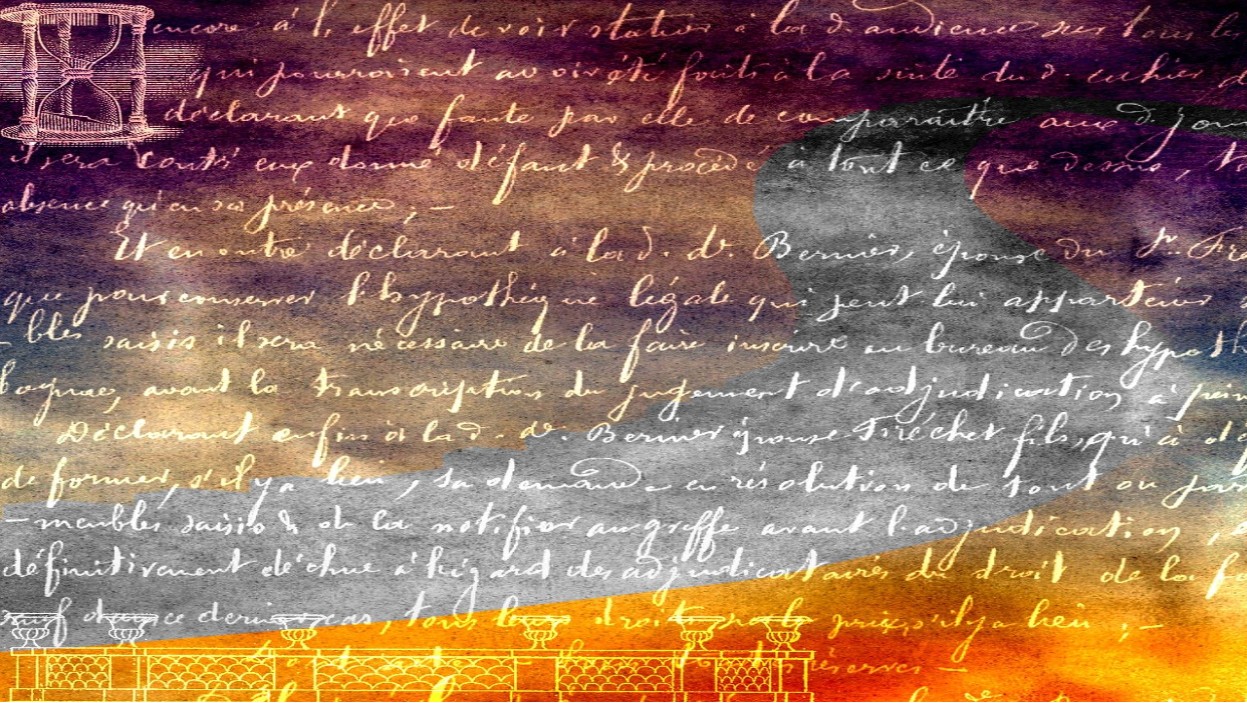 encore à l'effet de voir statuer à la d. audience sur tous les
qui pourraient avoir été faits à la suite du d. cahier d
déclarant que faute par elle de comparaître aux d. jour
il sera contr' eux donné défaut & procédé à tout ce que dessus, t
absence qu'en sa présence ; —
Et en outre déclarant à la d. de. Bernier, épouse du Sr. Fré
que pour conserver l'hypothèque légale qui peut lui appartenir s
-bles saisis il sera nécessaire de la faire inscrire au bureau des hypoth
avant la transcription du jugement d'adjudication à pein
Déclarant enfin à la d. de. Bernier épouse Fréchet fils, qu'à dé
de former, s'il y a lieu, sa demande en résolution de tout ou
-meubles saisis & de la notifier au greffe avant l'adjudication,
définitivement déchue à l'égard des adjudicataires du droit de la f
sauf dans ce dernier cas, tous leurs droits sur le prix, s'il y a lieu ; —
réserves —